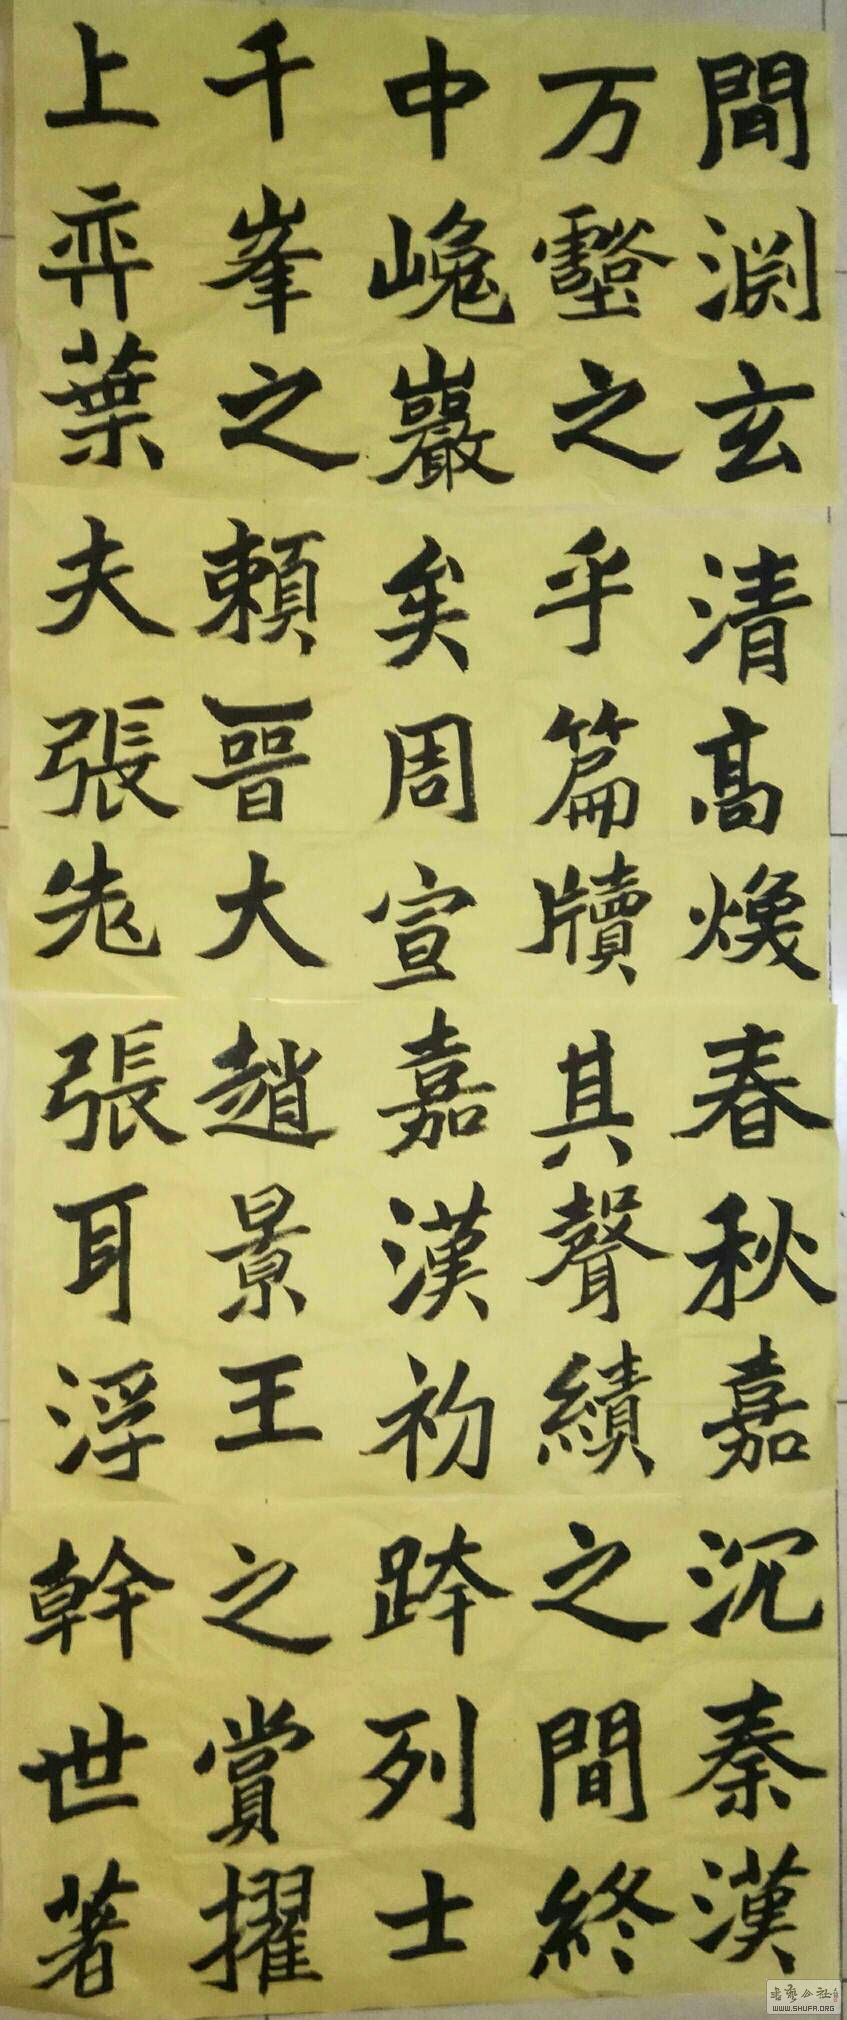 間淵玄
万壑之
中巉巖
千峯之
上弈葉
清高煥
乎篇牘
矣周宣
頼晉大
夫張老
春秋嘉
其聲績
嘉漢初
趙景王
張耳浮
沉秦漢
之間終
跨列士
之賞擢
幹世著
书艺公社
WWW.SHUFA.ORG